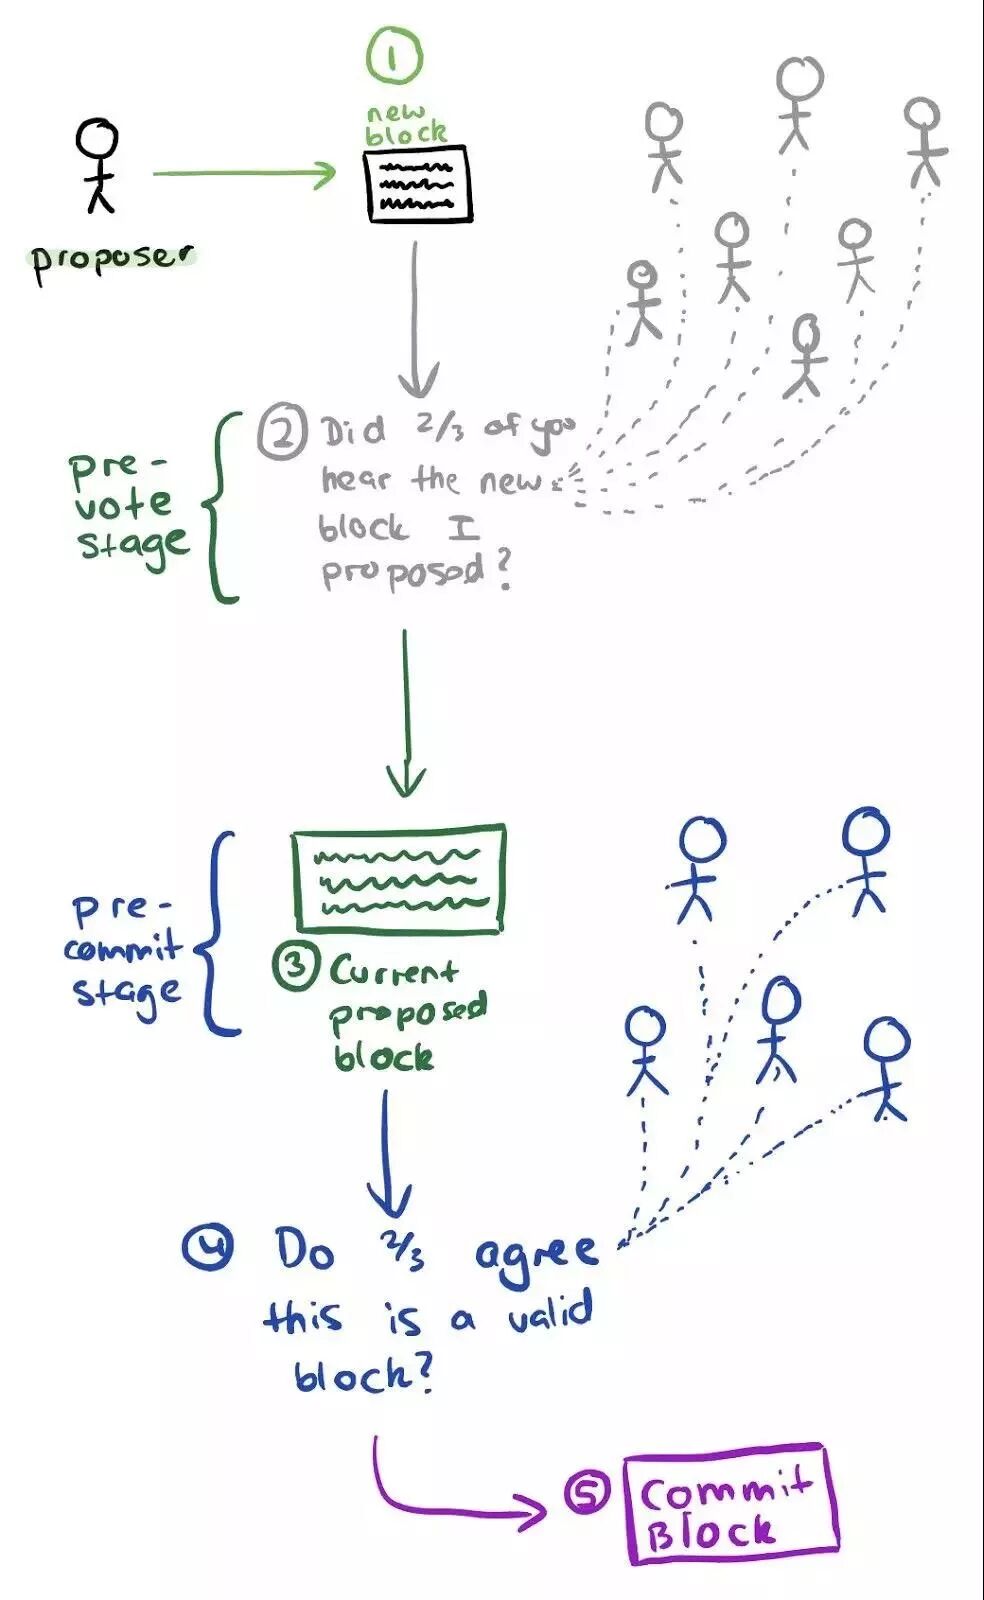 1
new
block
proposer
2 Did 2/3 of you
hear the new
block I
proposed?
pre-
vote
stage
pre-
commit
stage
3 Current
proposed
block
4 Do 2/3 agree
this is a valid
block?
5 Commit
Block